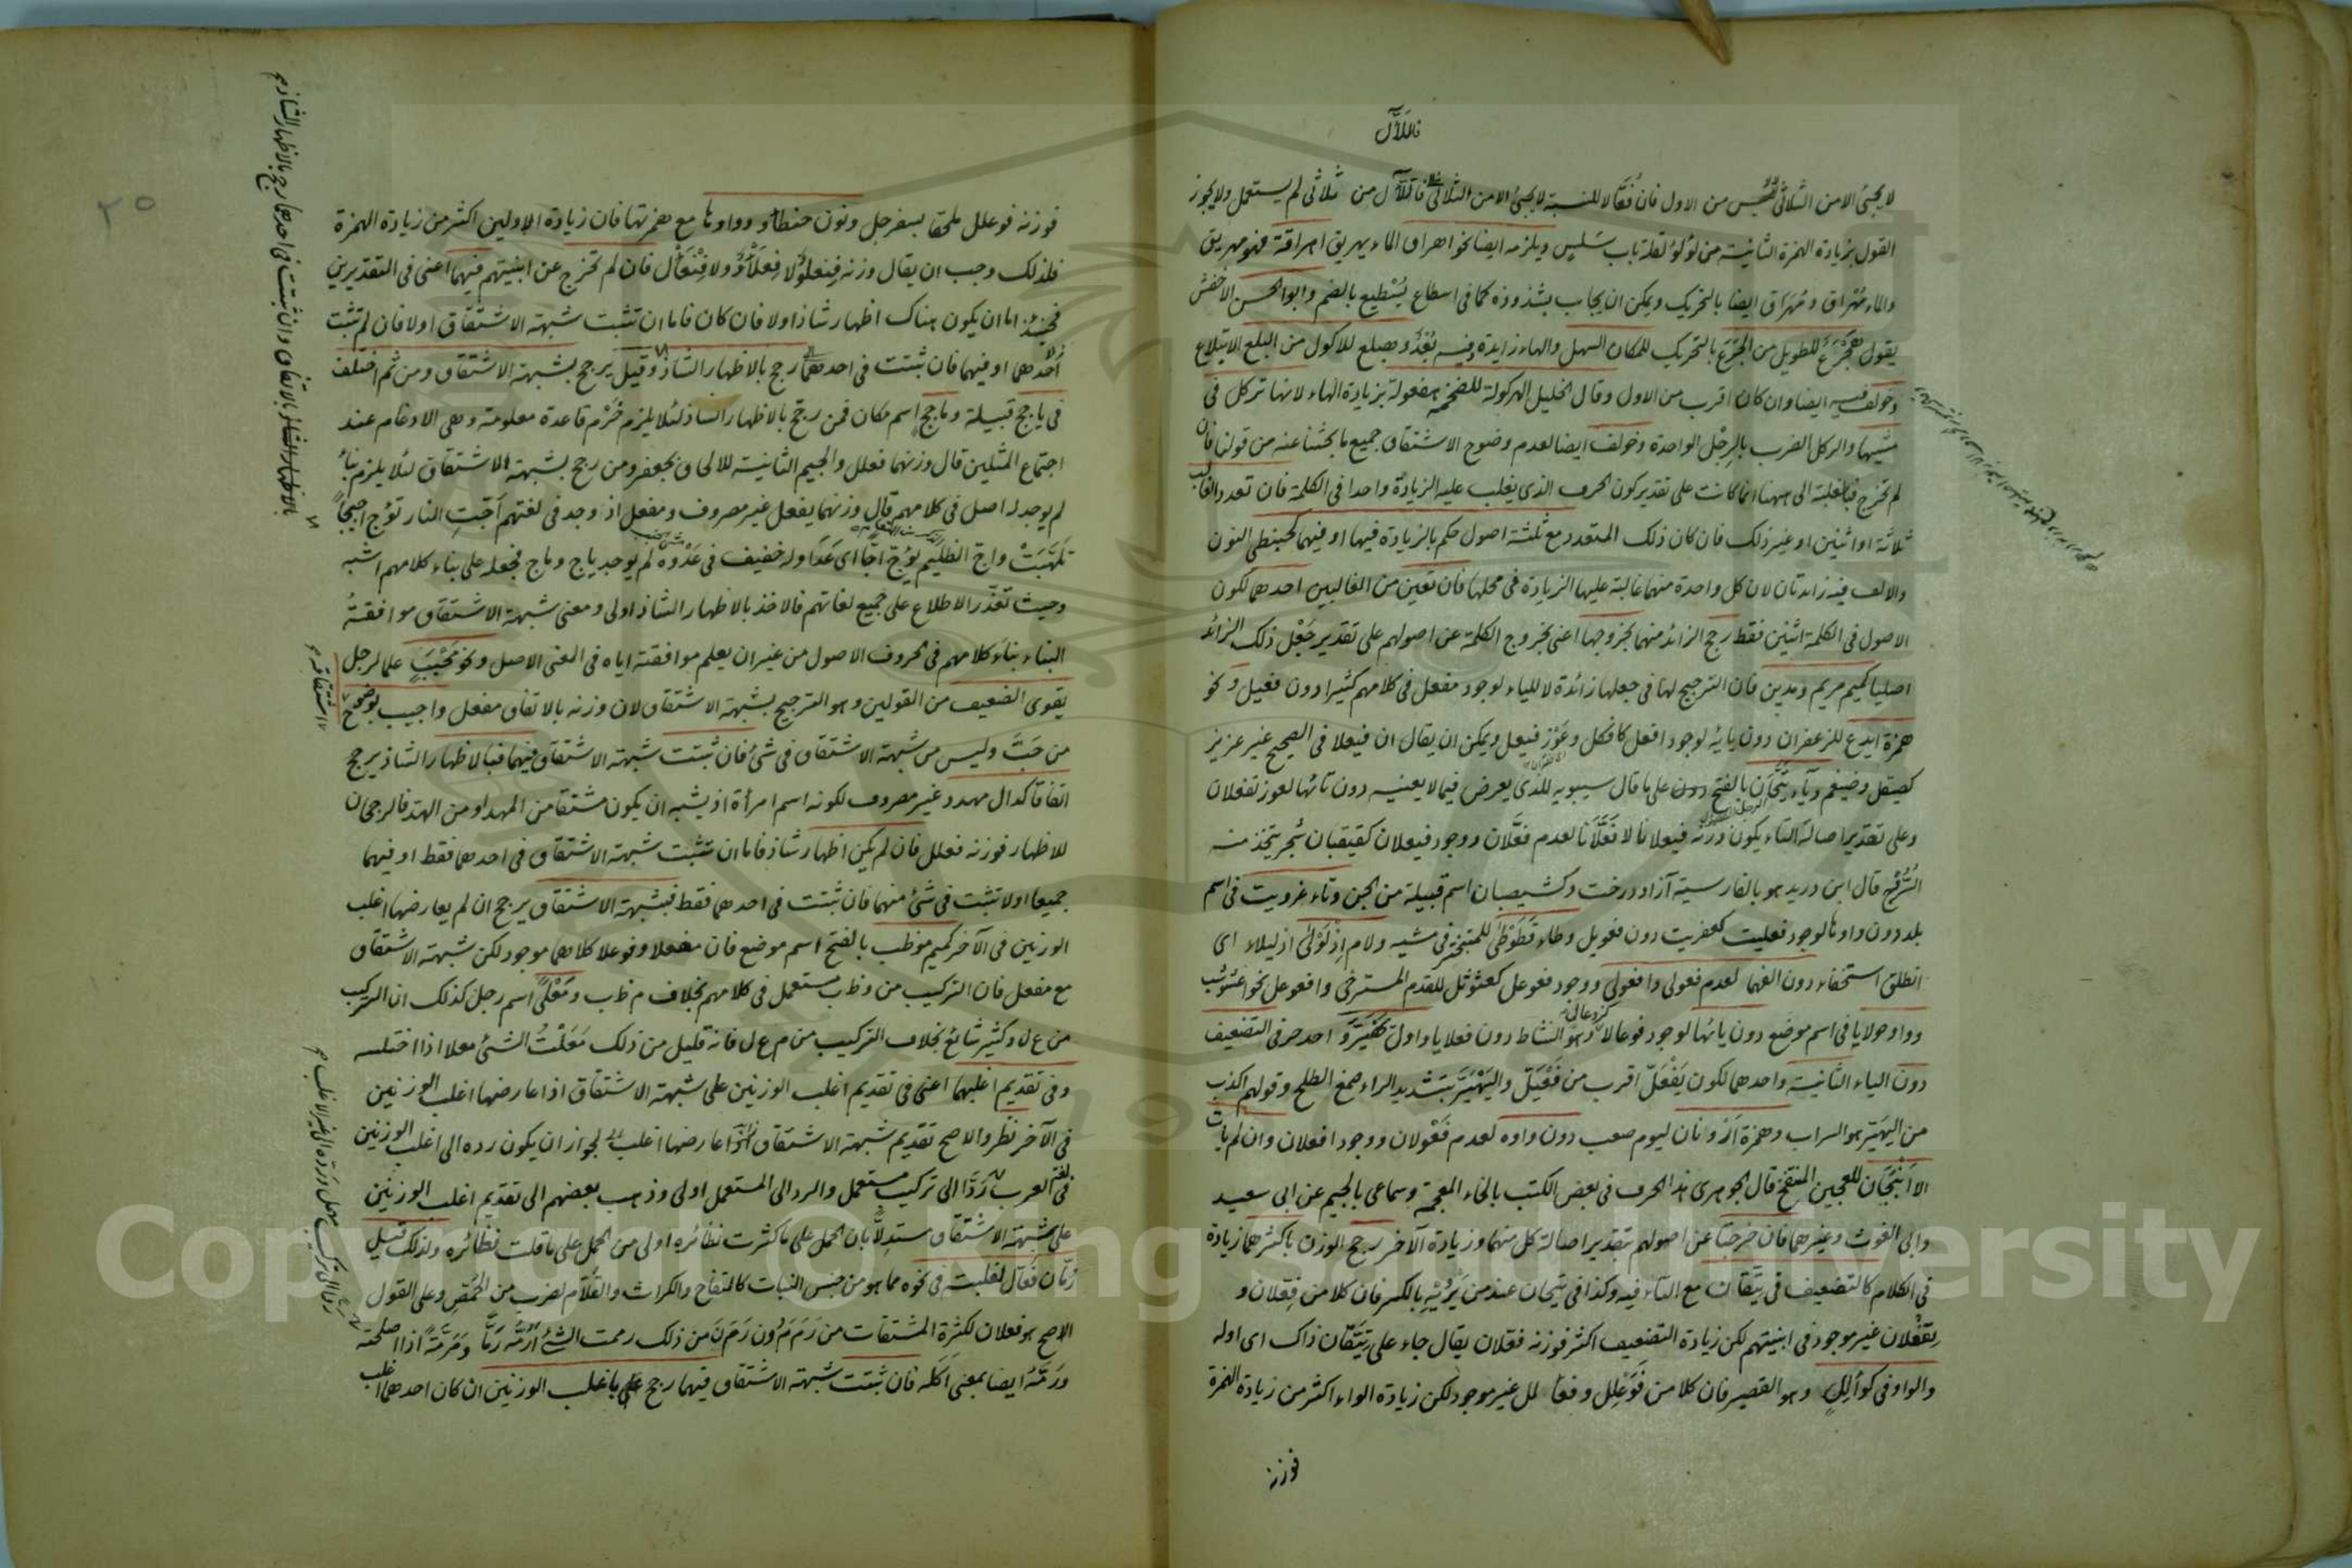 فاللآل
لا يجئ الا من الثلاثى وليس من الاول فان فعّالا للنسبة لا يجئ الا من الثلاثى فاللآل من ثلاثى لم يستعمل ولا يجوز
القول بزيادة الهمزة الثانية من لؤلؤ لقلة باب سَلِسٍ ويلزمه ايضا نحو اهراق الماء يهريق اهراقة فهو مهريق
والماء مُهْراق ومُهَرَاق ايضا بالتحريك ويمكن ان يجاب بشذوذه كما فى اسطاع يُسْطيع بالضم وابو الحسن الاخفش
يقول هِجْرَع للطويل من الجَرَع بالتحريك للمكان السهل والهاء زايدة فيه وهبلع للاكول من البلع الابتلاع
وخولف فيه ايضا وان كان اقرب من الاول وقال الخليل الهركولة للضخمة هفعولة بزيادة الهاء لانها تركل فى
مشيها والركل الضرب بالرِجْل الواحدة وخولف ايضا لعدم وضوح الاشتقاق جميع ما بحثنا عنه من قولنا فان
لم تخرج فبالغلبة الى ههنا انما كانت على تقدير كون الحرف الذى يغلب عليه الزيادة واحدا فى الكلمة فان تعدد الغالب
ثلاثة او اثنين او غير ذلك فان كان ذلك المتعدد مع ثلثة اصول حكم بالزيادة فيها او فيهما كحبنطى النون
والالف فيه زائدتان لان كل واحدة منهما غالبة عليها الزيادة فى محلها فان تعين من الغالبين احدهما لكون
الاصول فى الكلمة اثنين فقط رجح الزائد منهما بخروجها اعنى بخروج الكلمة عن اصولهم على تقدير جَعْل ذلك الزائد
اصليا كميم مريم ومدين فان الترجيح لها فى جعلها زائدة لا للياء لوجود مفعل فى كلامهم كثيرا دون فعيل ونحو
همزة ايدع للزعفران دون يائه لوجود افعل كافكل وعَوَز فيعل ويمكن ان يقال ان فيعلا فى الصحيح غير عزيز
كصيقل وضيغم وياء تيَّحَان بالفتح على ما قال سيبويه للذى يعرض فيما لا يعنيه دون تائها لعوز تفعلان
وعلى تقدير اصالة التاء يكون وزنه فيعلانا لا فَعَّلَانا لعدم فعَّلان ووجود فيعلان كقيقبان شجر يتخذ منه
السُّرُج قال ابن دريد هو بالفارسية آزاد درخت وكشيصبان اسم قبيلة من الجن وتاء عزويت فى اسم
بلد دون واوها لوجود فعليت كعفريت دون فعويل وطاء قَطَوْطَى للمتبختر فى مشيه ولام اِذْلَوْلَى اذليلاء اى
انطلق استخفاء دون الفهما لعدم فعولى وافعولى ووجود فعوعل كعثوثل للفدم المسترخى وافعوعل نحو اعشوشب
وواو حولايا فى اسم موضع دون يائها لوجود فوعالا وهو النشاط دون فعلايا واول يَهْيَرَّ احد حرفى التضعيف
دون الياء الثانية واحدهما لكون يَفْعَلّ اقرب من فَعْيَلّ واليَهْيَرّ بتشديد الراء صمغ الطلح وقولهم اكذب
من اليَهْيَر هو السراب وهمزة اَرْوَنان ليوم صعب دون واوه لعدم فَعْوَلان ووجود افعلان وان لم يأت
الا اَنْبَجَان للعجين المنتفخ قال الجوهرى هذا الحرف فى بعض الكتب بالخاء المعجمة وسماعى بالجيم عن ابى سعيد
وابى الغوث وغيرهما فان خرجتا عن اصولهم بتقدير اصالة كل منهما وزيادة الآخر رجح الوزن باكثرهما زيادة
فى الكلام كالتضعيف فى تِئِفّان مع التاء فيه وكذا فى تيحان عند من يَرْوِيْهِ بالكسر فان كلا من فِعِّلان و
تِفْعِلان غير موجود فى ابنيتهم لكن زيادة التضعيف اكثر فوزنه فعّلان يقال جاء على تِئِفّان ذاك اى اوله
والواو فى كوأللٍ وهو القصير فان كلا من فَوَعْلل وفعأ لل غير موجود لكن زيادة الواو اكثر من زيادة الهمزة
فوزنه
٣٥
فوزنه فوعلل ملحقا بسفرجل ونون حنطأو وواوها مع همزتها فان زيادة الاولين اكثر من زيادة الهمزة
فلذلك وجب ان يقال وزنه فِنعلْوٌ لا فِعلَأْوٌ ولا فِنْعَأْل فان لم تخرج عن ابنيتهم فيهما اعنى فى التقديرين
فحينئذ اما ان يكون هناك اظهار شاذ اولا فان كان فاما ان تثبت شبهة الاشتقاق اولا فان لم تثبت
احدهما او فيهما فان ثبتت فى احدهما رجح بالاظهار الشاذ وقيل يرجح بشبهة الاشتقاق ومن ثم اختلف
فى ياجج قبيلة وماجج اسم مكان فمن رجح بالاظهار الشاذ لئلا يلزم خَرْم قاعدة معلومة وهى الادغام عند
اجتماع المثلين قال وزنهما فعلل والجيم الثانية للالحاق بجعفر ومن رجح بشبهة الاشتقاق لئلا يلزم بناءٌ
لم يوجد له اصل فى كلامهم قال وزنهما يفعل غير مصروف ومفعل اذ وجد فى لغتهم اَجّتِ النار تؤج اجيجاً
تلهَّبَتْ واج الظليم يؤج اجّا اى عَدَا وله خفيف فى عَدْوه لم يوجد ياج وماج فجعله على بناء كلامهم اشبه
وحيث تعذّر الاطلاع على جميع لغاتهم فالاخذ بالاظهار الشاذ اولى ومعنى شبهة الاشتقاق موافقةُ
البناء بناءَ كلامهم فى الحروف الاصول من غير ان يعلم موافقته اياه فى المعنى الاصل ونحو مَحْبَبٍ علما لرجل
يقوى الضعيف من القولين وهو الترجيح بشبهة الاشتقاق لان وزنه بالاتفاق مفعل واجيب بوضوح
من حَبَّ وليس من شبهة الاشتقاق فى شئ فان ثبتت شبهة الاشتقاق فيهما فبالاظهار الشاذ يرجح
اتفاقا كدال مهدد غير مصروف لكونه اسم امرأة اذ يشبه ان يكون مشتقا من المهد او من الهد فالرجحان
للاظهار فوزنه فعلل فان لم يكن اظهار شاذ فاما ان تثبت شبهة الاشتقاق فى احدهما فقط او فيهما
جميعا او لا تثبت فى شئ منهما فان ثبتت فى احدهما فقط فبشبهة الاشتقاق يرجح ان لم يعارضها اغلب
الوزنين فى الآخر كميم موظب بالفتح اسم موضع فان مفعلا وفوعلا كلاهما موجود لكن شبهة الاشتقاق
مع مفعل فان التركيب من وظب مستعمل فى كلامهم بخلاف م ظ ب ومَعْلًى اسم رجل كذلك ان التركيب
من ع ل و كثير شائع بخلاف التركيب من م ع ل فانه قليل من ذلك مَعَلْتُ الشئ معلا اذا اختلسه
وفى تقديم اغلبهما اعنى فى تقديم اغلب الوزنين على شبهة الاشتقاق اذا عارضها اغلب الوزنين
فى الآخر نظر والاصح تقديم شبهة الاشتقاق اذا عارضها اغلب لجواز ان يكون رده الى اغلب الوزنين
فى لغة العرب رَدًّا الى تركيب مستعمل والرد الى المستعمل اولى وذهب بعضهم الى تقديم اغلب الوزنين
على شبهة الاشتقاق مستدلاًّ بان الحمل على ما كثرت نظائره اولى من الحمل على ما قلت نظائره ولذلك قيل
رُمّان فُعّال لغلبته فى نحوه مما هو من جنس النبات كالتفاح والكراث والقُلّام لضرب من الحَمْض وعلى القول
الاصح هو فعلان لكثرة المشتقات من رَمَمَ دُون رَمَنَ من ذلك رممت الشئ اَرُمُّه رَمًّا ومَرَمَّةً اذا اصلحته
ورَمَّهُ ايضا بمعنى اَكَلَه فان ثبتت شبهة الاشتقاق فيهما رجح باغلب الوزنين ان كان احدهما اغلب